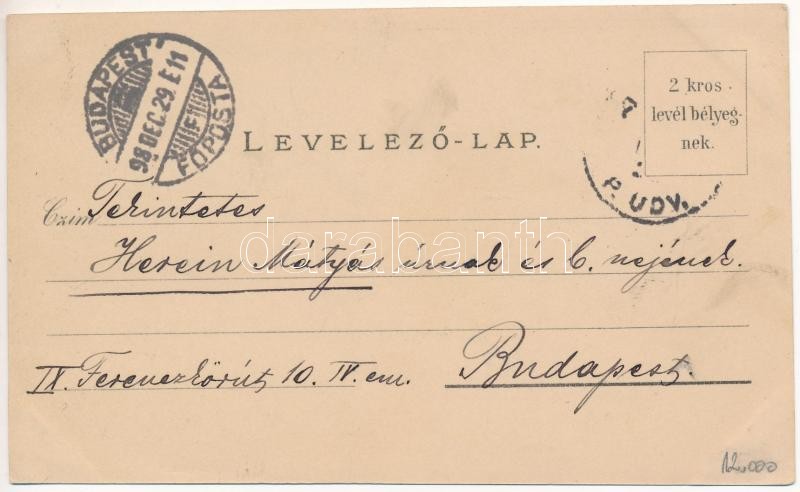 BUDAPEST
98 DEC. 29. E 11
FŐPOSTA
2 kros
levél bélyeg-
nek.
LEVELEZŐ-LAP.
P. UDV.
Czim Tekintetes
Herein Mátyás úrnak és b. nejének.
darabanth
IX. Ferenczkörút 10. IV. em. Budapest.
12.000